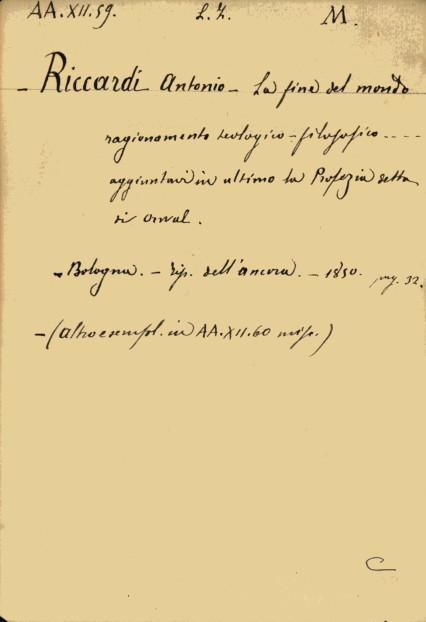 AA.XII.59. L.Z. M.
- Riccardi Antonio - La fine del mondo
ragionamento teologico-filosofico ----
aggiuntavi in ultimo la Profezia detta
di Orval.
- Bologna. - Tip. dell'ancora. - 1850. pag. 32.
- (altro esempl. in AA.XII.60 misc.)
C